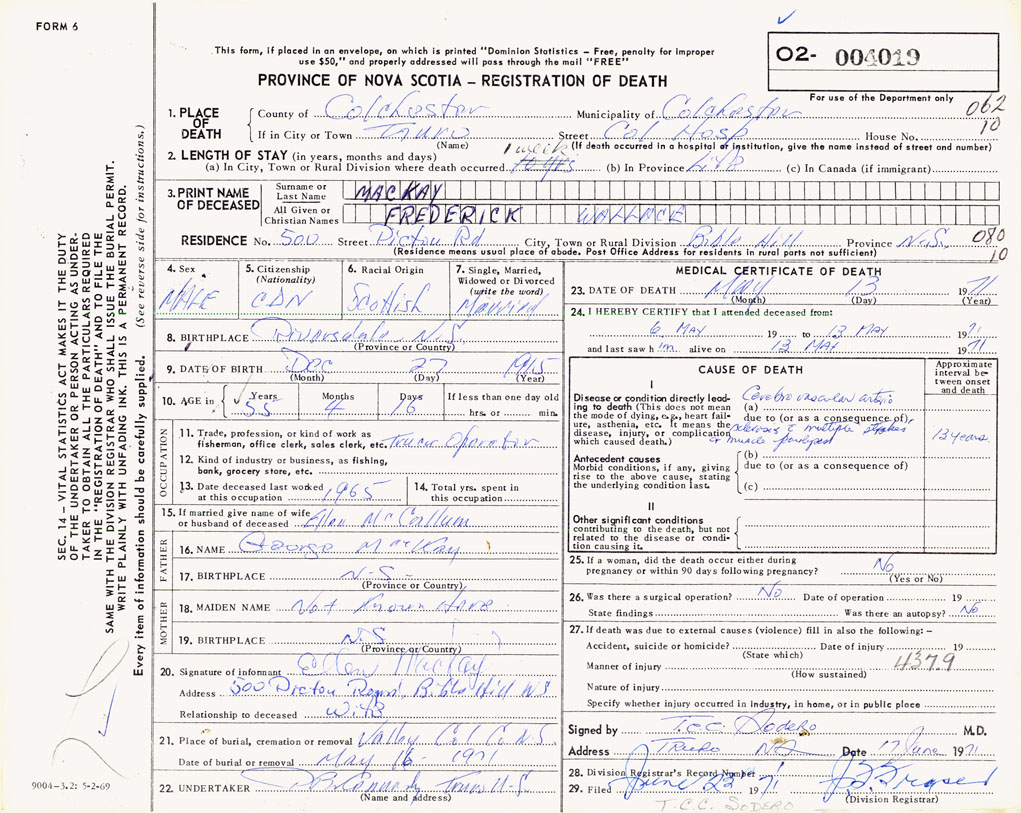 FORM 6
This form, if placed in an envelope, on which is printed "Dominion Statistics – Free, penalty for improper
use $50," and properly addressed will pass through the mail "FREE"
PROVINCE OF NOVA SCOTIA – REGISTRATION OF DEATH
02- 004019
For use of the Department only
062
10
1. PLACE OF DEATH
County of Colchester Municipality of Colchester
If in City or Town Truro Street Col Hosp House No.
(Name) (If death occurred in a hospital or institution, give the name instead of street and number)
2. LENGTH OF STAY (in years, months and days) 1 week
(a) In City, Town or Rural Division where death occurred (b) In Province Life (c) In Canada (if immigrant)
3. PRINT NAME OF DECEASED
Surname or Last Name MACKAY
All Given or Christian Names FREDERICK WALLACE
RESIDENCE No. 500 Street Pictou Rd City, Town or Rural Division Bible Hill Province N.S. 080
10
(Residence means usual place of abode. Post Office Address for residents in rural parts not sufficient)
4. Sex MALE
5. Citizenship (Nationality) CDN
6. Racial Origin Scottish
7. Single, Married, Widowed or Divorced (write the word) Married
8. BIRTHPLACE Riversdale, N.S.
(Province or Country)
9. DATE OF BIRTH Dec 27 1915
(Month) (Day) (Year)
10. AGE in Years 55 Months 4 Days 16 If less than one day old hrs. or min.
OCCUPATION
11. Trade, profession, or kind of work as
fisherman, office clerk, sales clerk, etc. Operator
12. Kind of industry or business, as fishing,
bank, grocery store, etc.
13. Date deceased last worked at this occupation 1965
14. Total yrs. spent in this occupation
15. If married give name of wife
or husband of deceased Ellen McCallum
FATHER
16. NAME George MacKay
17. BIRTHPLACE N-S-
(Province or Country)
MOTHER
18. MAIDEN NAME Not Known Here
19. BIRTHPLACE N.S.
(Province or Country)
20. Signature of informant Ellen MacKay
Address 500 Pictou Road, Bible Hill N.S
Relationship to deceased Wife
21. Place of burial, cremation or removal Valley Col. Co. N.S.
Date of burial or removal May 16 - 1971
22. UNDERTAKER Truro N-S.
(Name and address)
MEDICAL CERTIFICATE OF DEATH
23. DATE OF DEATH May 13 1971
(Month) (Day) (Year)
24. I HEREBY CERTIFY that I attended deceased from:
6 MAY 19 to 13 MAY 1971
and last saw him alive on 13 MAY 1971
CAUSE OF DEATH
Approximate interval between onset and death
I
Disease or condition directly leading to death (This does not mean the mode of dying, e.g., heart failure, asthenia, etc. It means the disease, injury, or complication which caused death.)
(a) Cerebrovascular arterio
due to (or as a consequence of)
sclerosis & multiple strokes
& muscle paralysis
13 years.
Antecedent causes
Morbid conditions, if any, giving rise to the above cause, stating the underlying condition last.
(b)
due to (or as a consequence of)
(c)
II
Other significant conditions
contributing to the death, but not related to the disease or condition causing it.
25. If a woman, did the death occur either during
pregnancy or within 90 days following pregnancy? No
(Yes or No)
26. Was there a surgical operation? No Date of operation 19
State findings Was there an autopsy? No
27. If death was due to external causes (violence) fill in also the following: –
Accident, suicide or homicide? Date of injury 19
(State which)
Manner of injury 437.9
(How sustained)
Nature of injury
Specify whether injury occurred in Industry, in home, or in public place
Signed by T.C.C. Sodero M.D.
Address Truro NS Date 17 June 1971
28. Division Registrar's Record Number
29. Filed June 23 1971
(Division Registrar)
T.C.C. SODERO
SEC. 14 – VITAL STATISTICS ACT MAKES IT THE DUTY
OF THE UNDERTAKER OR PERSON ACTING AS UNDER-
TAKER TO OBTAIN ALL THE PARTICULARS REQUIRED
IN THE "REGISTRATION OF DEATH" AND TO FILE THE
SAME WITH THE DIVISION REGISTRAR WHO SHALL ISSUE THE BURIAL PERMIT.
WRITE PLAINLY WITH UNFADING INK. THIS IS A PERMANENT RECORD.
Every item of information should be carefully supplied. (See reverse side for instructions.)
9004-3.2: 5-2-69